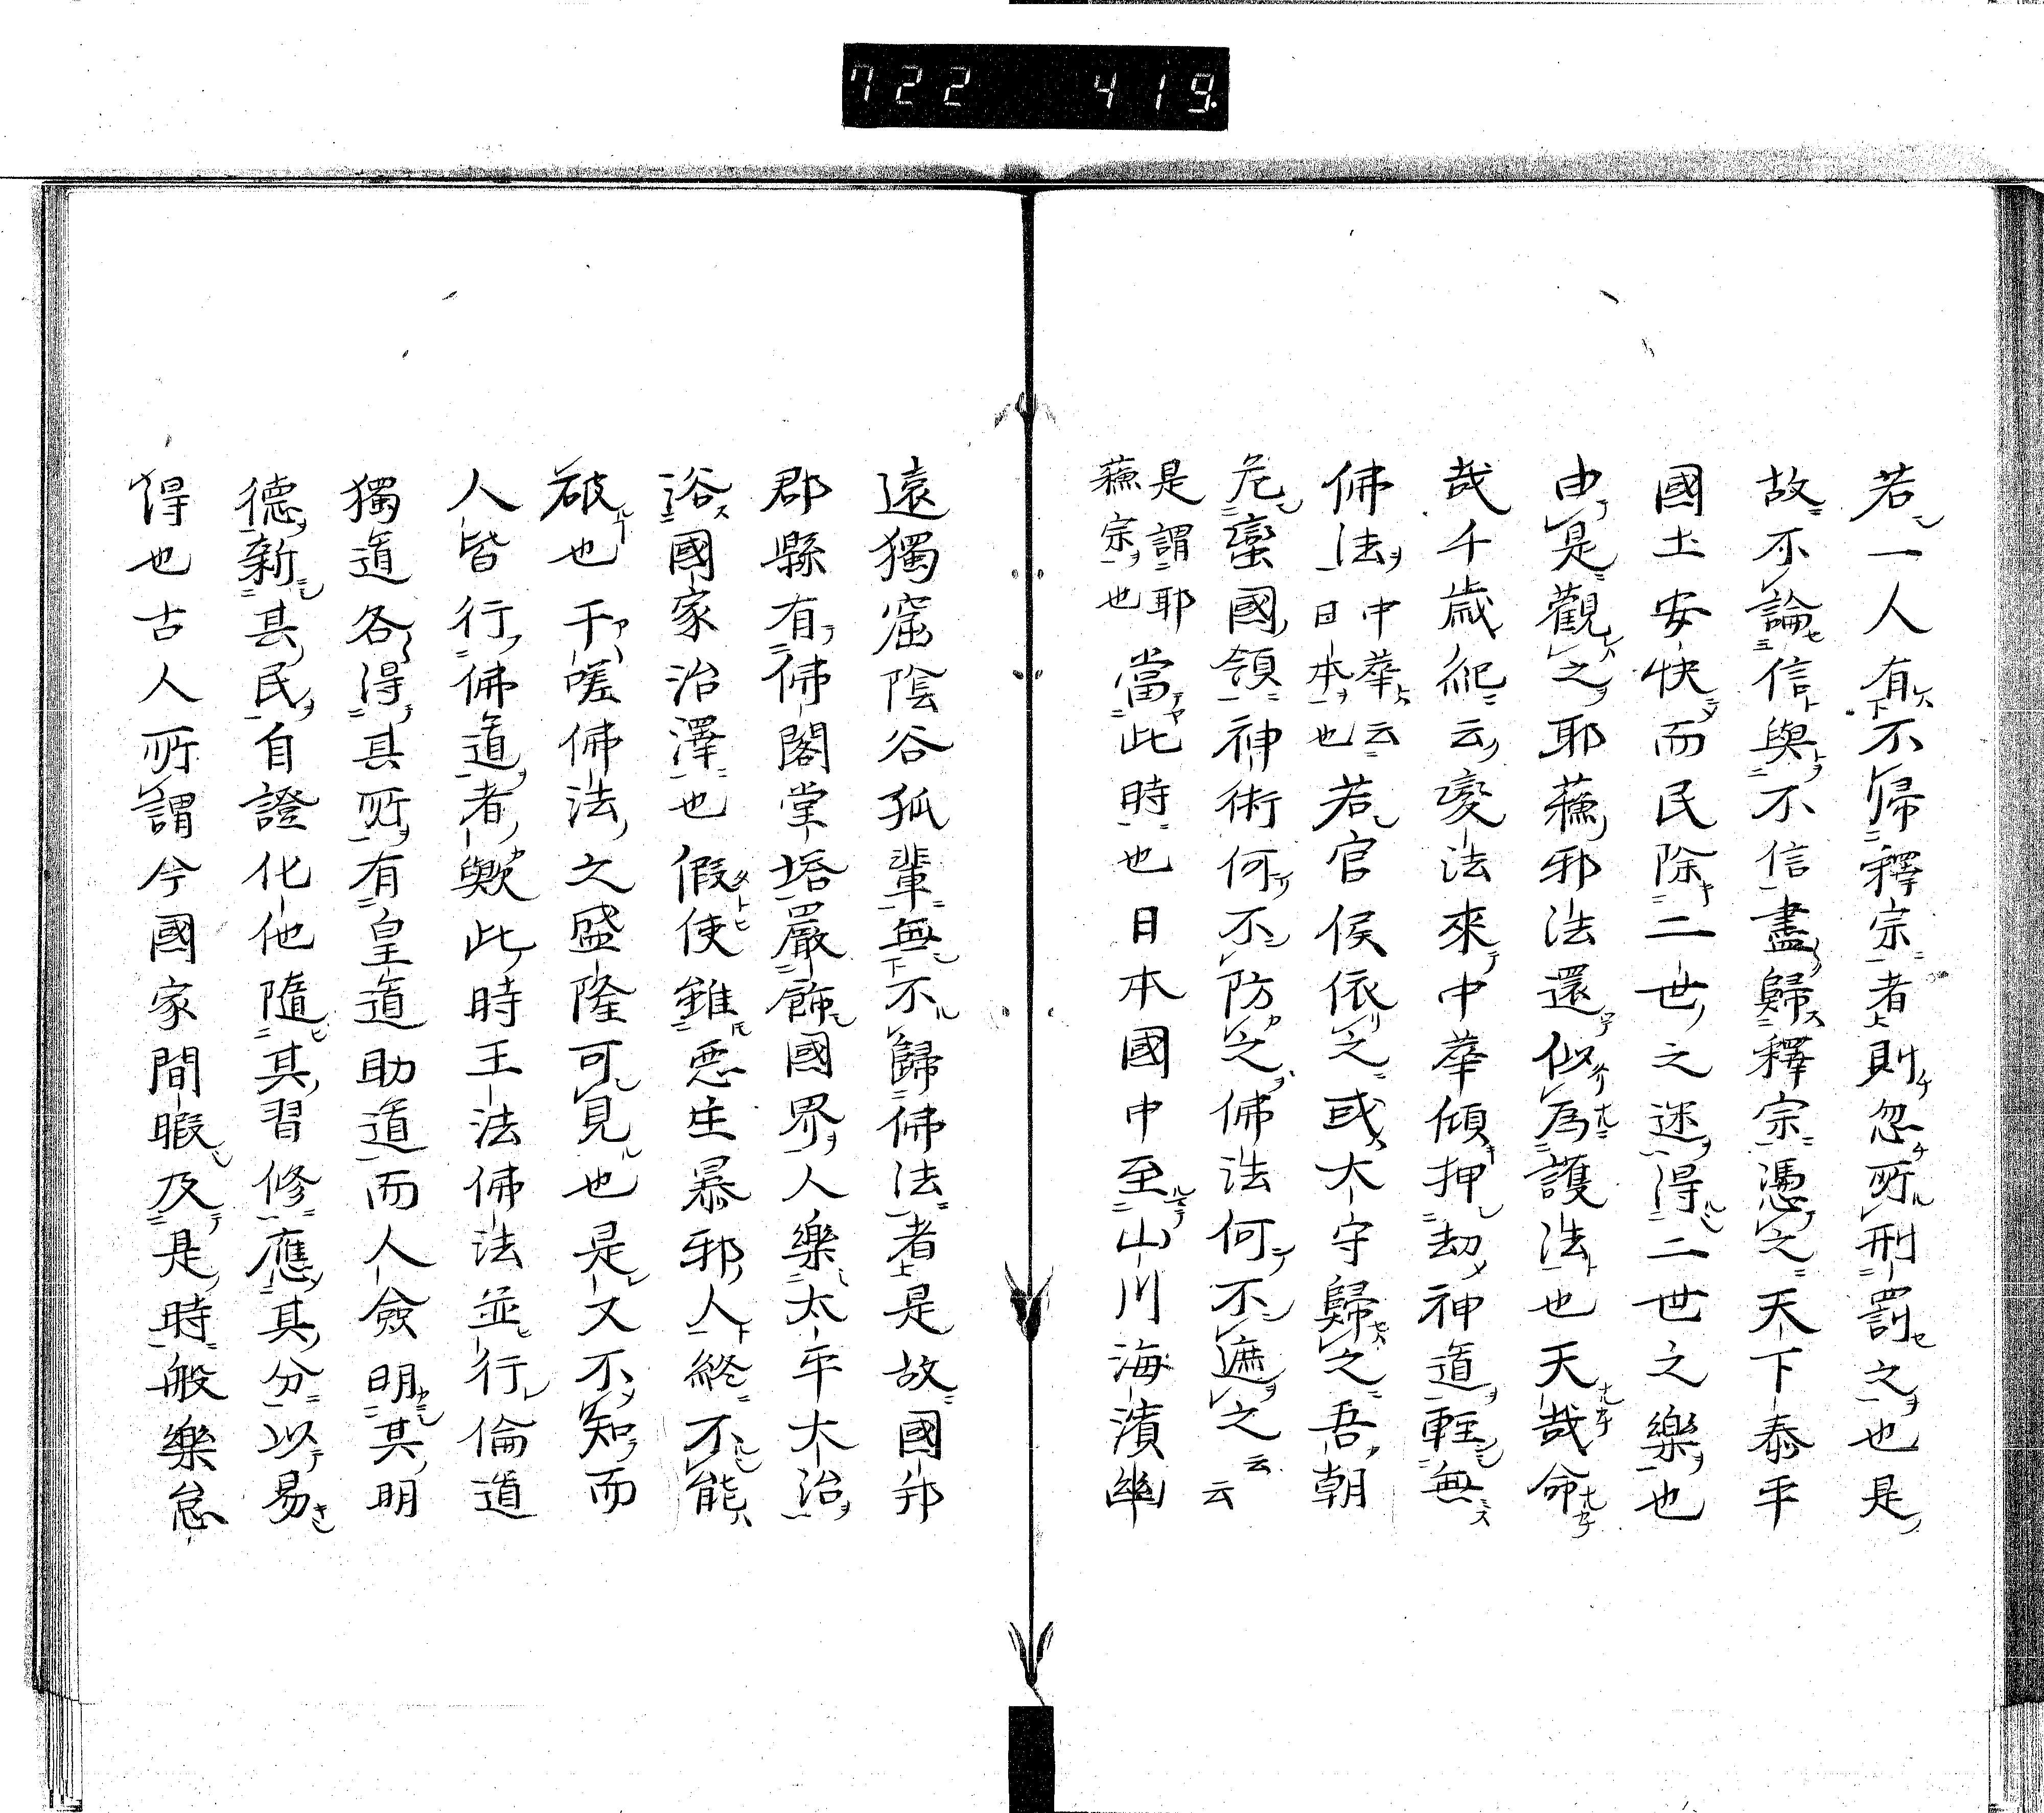 722 419
若一人有不歸釋宗者則忽所刑罰之也是
故不論信與不信盡歸釋宗憑之天下泰平
國土安快而民除二世之迷得二世之樂也
由是觀之耶蘓邪法還似為護法也天哉命
哉千歳紀云変法來中華傾押劫神道軽無
佛法中華云日本也若官侯依之或大守歸之吾朝
危蛮國領神術何不防之佛法何不遮之云云
是謂耶蘓宗也當此時也日本國中至山川海濱幽
遠獨窟陰谷孤輩無不歸佛法者是故國并
郡縣有佛閣堂塔嚴飾國界人樂太平大治
浴國家治澤也假使雖悪生暴邪人終不能
破也于嗟佛法之盛隆可見也是又不知而
人皆行佛道者歟此時王法佛法並行倫道
獨道各得其所有皇道助道而人僉明其明
德新其民自證化他隨其習修應其分以易
得也古人所謂今國家間暇及是時般樂怠